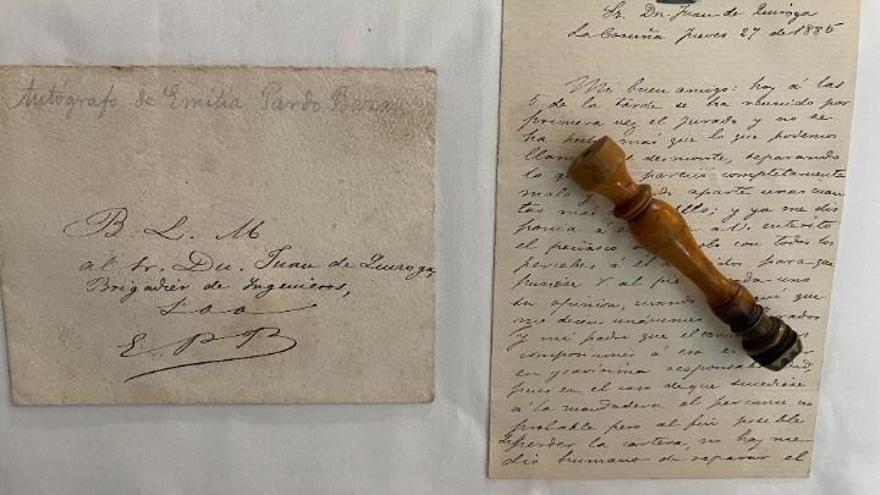 Autógrafo de Emilia Pardo Bazan
B. L. M
al Sr. Dn. Juan de Quiroga,
Brigadier de Ingenieros,
S. a a
E P B
Sr. Dn. Juan de Quiroga
La Coruña Jueves 27 de 1885
Mi buen amigo: hoy á las
5 de la tarde se ha reunido por
primera vez el Jurado y no se
ha hecho mas que lo que podemos
llam desmonte, separando
lo q parecia completamente
malo y aparte unas cuan
tas mas llo; y ya me dis
ponia á á V. enterito
el peñasco solo con todos los
percebes á él dos para que
pudiese V. al pie cada uno
su opinion, cuando qué que
me dicen unánimes rados
y mi padre que el
composiciones á esa es
en gravisima responsab dad,
pues en el caso de que sucediese
á la mandadera el percance no
probable pero al fin posible
de perder la cartera, no hay me
dio humano de reparar el